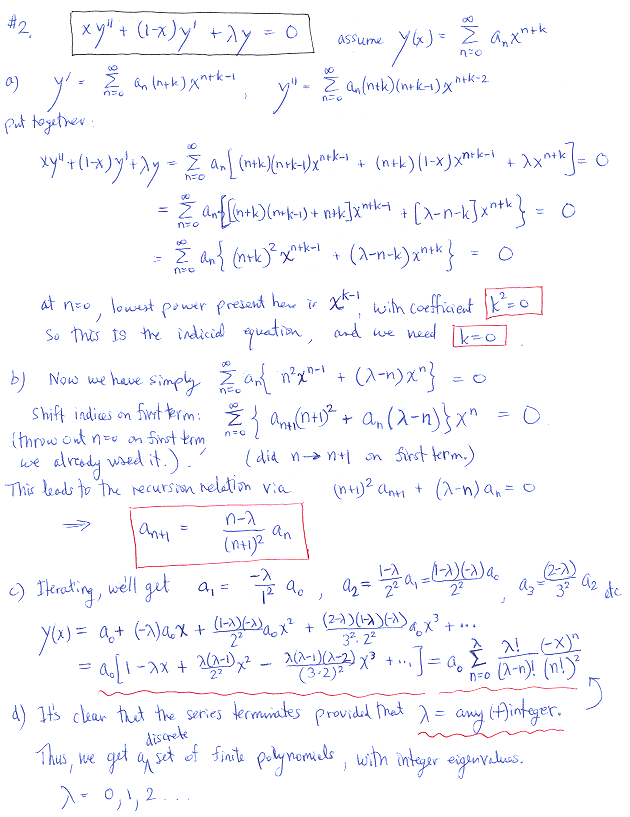 #2. xy'' + (1-x)y' + λy = 0 assume y(x) = ∑_{n=0}^{∞} a_n x^{n+k}
a) y' = ∑_{n=0}^{∞} a_n (n+k) x^{n+k-1}, y'' = ∑_{n=0}^{∞} a_n (n+k)(n+k-1) x^{n+k-2}
put together:
xy'' + (1-x)y' + λy = ∑_{n=0}^{∞} a_n [ (n+k)(n+k-1)x^{n+k-1} + (n+k)(1-x)x^{n+k-1} + λx^{n+k} ] = 0
= ∑_{n=0}^{∞} a_n { [(n+k)(n+k-1) + n+k] x^{n+k-1} + [λ-n-k] x^{n+k} } = 0
= ∑_{n=0}^{∞} a_n { (n+k)² x^{n+k-1} + (λ-n-k) x^{n+k} } = 0
at n=0, lowest power present here is x^{k-1}, with coefficient k²=0
So this IS the indicial equation, and we need k=0.
b) Now we have simply ∑_{n=0}^{∞} a_n { n² x^{n-1} + (λ-n) x^n } = 0
Shift indices on first term: ∑_{n=0}^{∞} { a_{n+1} (n+1)² + a_n (λ-n) } x^n = 0.
(throw out n=0 on first term
we already used it.). (did n→n+1 on first term.)
This leads to the recursion relation via (n+1)² a_{n+1} + (λ-n) a_n = 0
⇒ a_{n+1} = \frac{n-λ}{(n+1)²} a_n
c) Iterating, we'll get a_1 = \frac{-λ}{1²} a_0, a_2 = \frac{1-λ}{2²} a_1 = \frac{(1-λ)(-λ)a_0}{2²}, a_3 = \frac{(2-λ)}{3²} a_2 etc.
y(x) = a_0 + (-λ)a_0 x + \frac{(1-λ)(-λ)}{2²} a_0 x² + \frac{(2-λ)(1-λ)(-λ)}{3²·2²} a_0 x³ + ...
= a_0 [ 1 - λx + \frac{λ(λ-1)}{2²} x² - \frac{λ(λ-1)(λ-2)}{(3·2)²} x³ + ... ] = a_0 ∑_{n=0}^{λ} \frac{λ!}{(λ-n)!} \frac{(-x)^n}{(n!)²}
d) It's clear that the series terminates provided that λ = any (+) integer.
Thus, we get a discrete set of finite polynomials, with integer eigenvalues.
λ = 0, 1, 2 ...